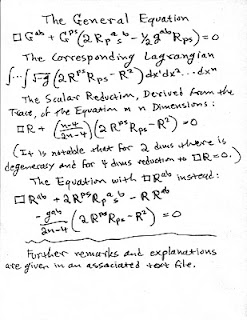 The General Equation
□G^{ab} + G^{ps}(2R_p{}^a{}_s{}^b - ½g^{ab}R_{ps}) = 0
The Corresponding Lagrangian
∫···∫√-g (2R^{ps}R_{ps} - R²) dx¹dx²...dxⁿ
The Scalar Reduction, Derived from the
Trace, of the Equation in n Dimensions:
□R + (n-4/2n-4)(2R^{ps}R_{ps} - R²) = 0
(It is notable that for 2 dims there is
degeneracy and for 4 dims reduction to □R=0.)
The Equation with □R^{ab} instead:
□R^{ab} + 2R^{ps}R_p{}^a{}_s{}^b - RR^{ab}
- g^{ab}/2n-4 (2R^{ps}R_{ps} - R²) = 0
Further remarks and explanations
are given in an associated text file.